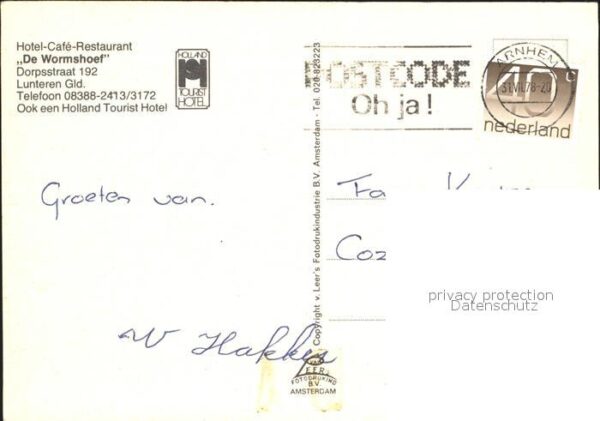 Hotel-Café-Restaurant
„De Wormshoef"
Dorpsstraat 192
Lunteren Gld.
Telefoon 08388-2413/3172
Ook een Holland Tourist Hotel
HOLLAND
TOURIST
HOTEL
Copyright v. Leer's Fotodrukindustrie B.V. Amsterdam - Tel. 020-823223
POSTCODE
Oh ja!
ARNHEM
40 c
nederland
Groeten van.
W Hakkes
Fa
Coz
privacy protection
Datenschutz
LEER
FOTODRUKIND
B.V.
AMSTERDAM